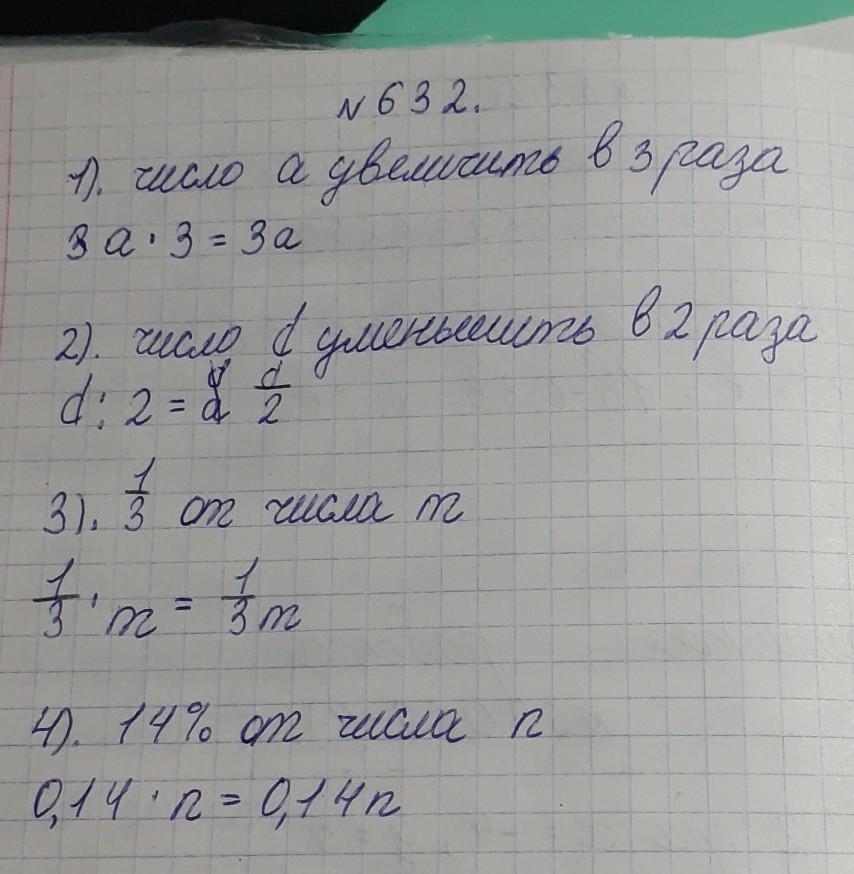 № 632.
1). число a увеличить в 3 раза
3 a · 3 = 3a
2). число d уменьшить в 2 раза
d : 2 = d/2
3). 1/3 от числа m
1/3 · m = 1/3 m
4). 14% от числа n
0,14 · n = 0,14n